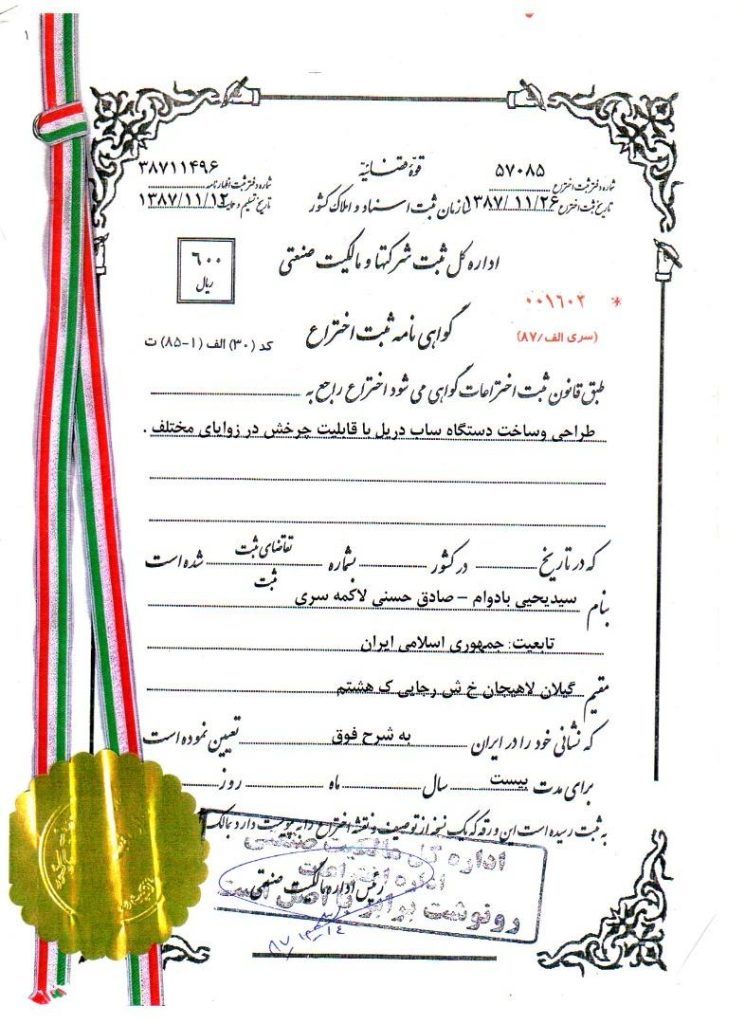 ۱
۵۷۰۸۵ قوّه قضائیّه ۳۸۷۱۱۴۹۶
شماره دفتر ثبت اختراع شماره دفتر ثبت اظهارنامه
تاریخ ثبت اختراع ۱۳۸۷/۱۱/۲۶ سازمان ثبت اسناد و املاک کشور تاریخ تسلیم ۱۳۸۷/۱۱/۱۲
اداره کل ثبت شرکتها و مالکیت صنعتی
۶۰۰
ریال
* ۰۰۱۶۰۲
(سری الف/۸۷) گواهی نامه ثبت اختراع کد (۳۰) الف (۱-۸۵) ت
طبق قانون ثبت اختراعات گواهی می شود اختراع راجع به
طراحی وساخت دستگاه ساب دریل با قابلیت چرخش در زوایای مختلف .
که در تاریخ در کشور بشماره تقاضای ثبت شده است
ثبت
بنام سیدیحیی بادوام – صادق حسنی لاکمه سری
تابعیت: جمهوری اسلامی ایران
مقیم گیلان لاهیجان خ ش رجایی ک هشتم
که نشانی خود را در ایران به شرح فوق تعیین نموده است
برای مدت بیست سال ماه روز
به ثبت رسیده است این ورقه که یک نسخه از توصیف و نقشه اختراع را به پیوست دارد بمالک
اداره کل مالکیت صنعتی
اداره اختراعات
رئیس اداره مالکیت صنعتی
رونوشت برابر با اصل است